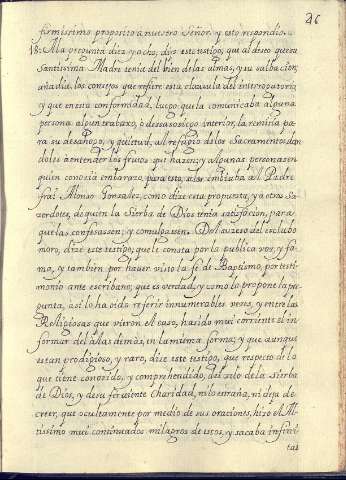 26
firmissimo proposito a nuestro Señor, y esto respondio.
18: A la pregunta diez y ocho, dijo este testigo, que al deseo que su
Santissima Madre tenia del bien de las almas, y su salbacion,
añadia, los consejos que refiere esta clausula del interrogatorio,
y que en esta conformidad, luego que la comunicaba alguna
persona algun trabaxo, o desasosiego interior, la remitia pa
ra su desahogo, y quietud, al refugio de los Sacramentos dan
doles a entender los frutos que hazen; y algunas personas en
quien conocia embarazo, para esto, las embiaba al Padre
frai Alonso Gonzalez, como dize esta propuesta, y a otros Sa
cerdotes, de quien la Sierba de Dios tenia satisfacion, para
que las confesassen, y comulgassen. Del suzeso del esclabo
moro, dize este testigo; que le consta por la publica voz, y fa
ma, y tambien por hauer visto la fe de Baptismo, por testi
monio ante escribano; que es verdad, y como lo propone la pre
gunta, assi lo ha oido referir innumerables vezes, y entre las
Religiosas que vieron el caso, ha sido mui corriente el in
formar del a las demas, en la misma forma; y que aunque
es tan prodigioso, y raro, dize este testigo, que respecto de lo
que tiene conozido, y comprehendido, del zelo de la Sierba
de Dios, y de su ferviente Charidad, ni lo estraña, ni deja de
creer, que ocultamente por medio de sus oraciones, hizo el Al-
tissimo mui continuados milagros de estos, y sacaba infini
tas